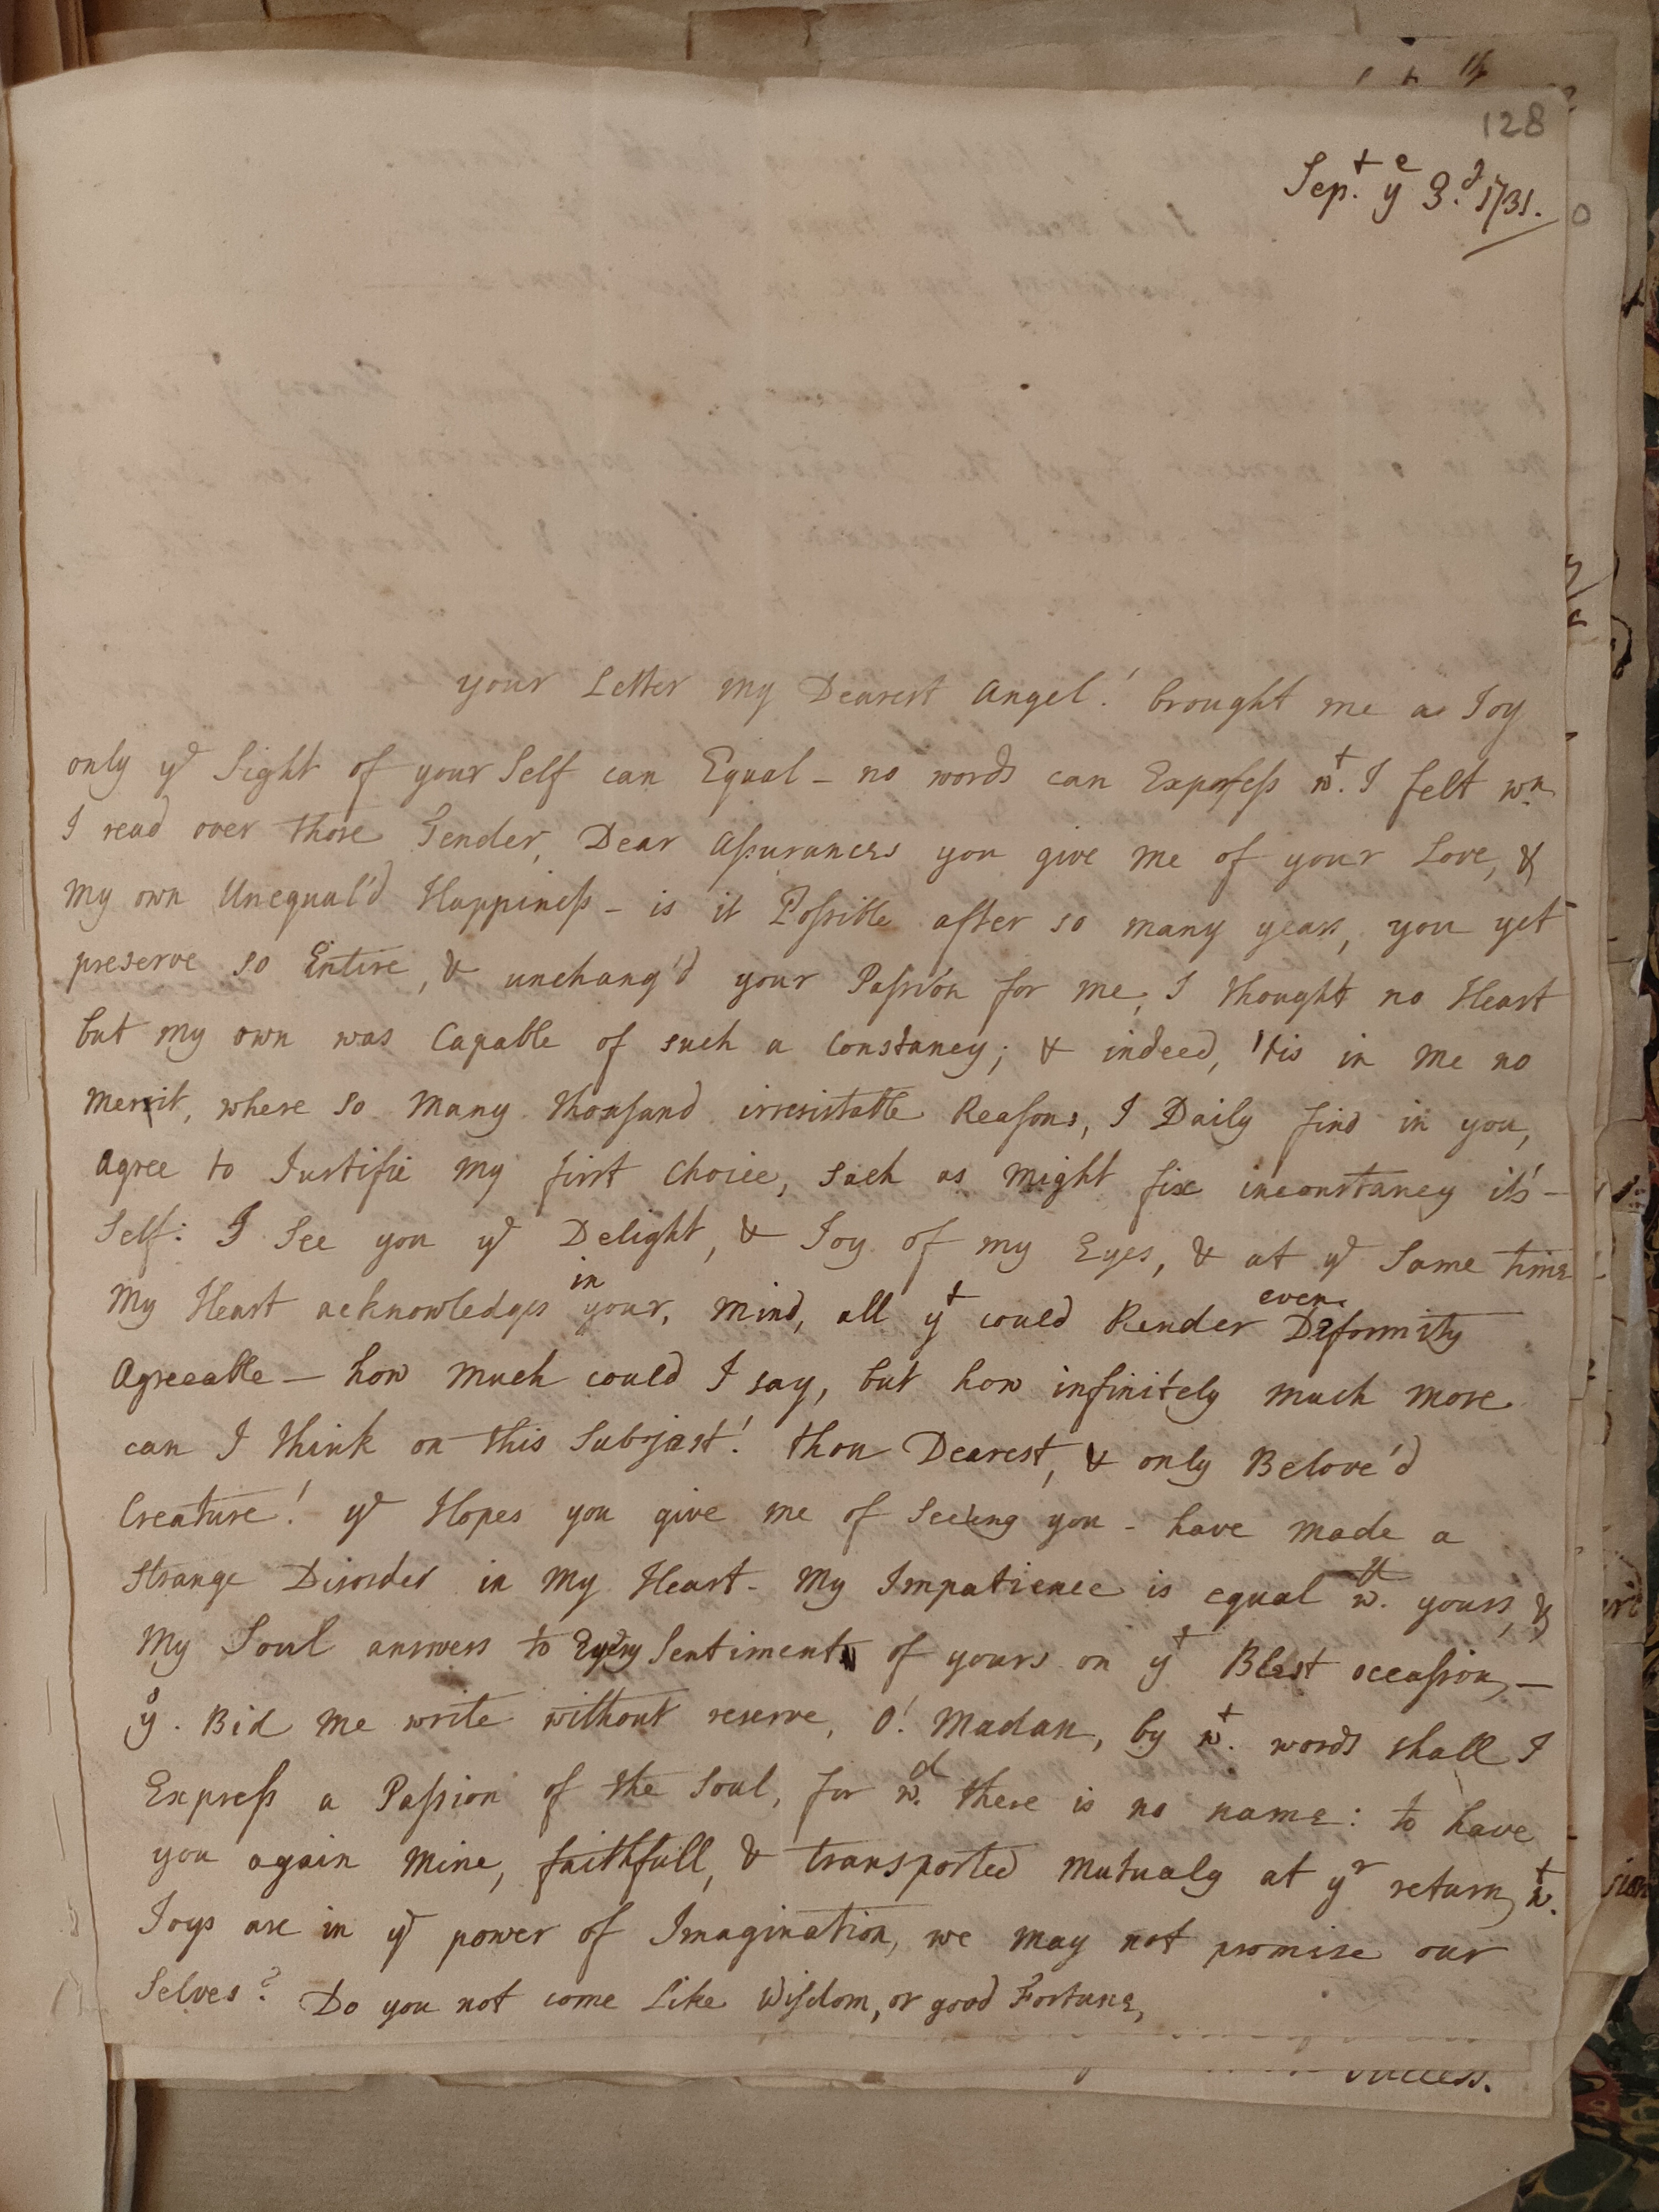 128
Sep.t ye 3.d 1731.
your Letter my Dearest Angel! brought me a Joy
only ye Sight of your Self can Equal – no words can Express wt. I felt wn
I read over those Tender, Dear Assurances you give me of your Love, &
my own Unequal'd Happiness – is it Possible after so many years, you yet
preserve so Entire, & unchang'd your Passion for me, I thought no Heart
but my own was Capable of such a Constancy; & indeed, 'tis in me no
Merrit, where so Many thousand irresistable Reasons, I Daily find in you,
Agree to Justifie my first Choice, Such as Might fix inconstancy it's–
Self: I See you ye Delight, & Joy of my Eyes, & at ye Same time
My Heart acknowledges in your, Mind, all yt could Render even Deformity
Agreeable – how Much could I say, but how infinitely Much more
can I think on this Subject! thou Dearest, & only Belove'd
Creature! ye Hopes you give me of Seeing you – have made a
Strange Disorder in My Heart – My Impatience is equal wth. yours, &
My Soul answers to Every Sentiment of yours on yt Blest occassion, –
yo. Bid me write without reserve, O! Madam, by wt. words shall I
Express a Passion of the Soul, for wch. there is no name: to have
you again Mine, faithfull, & transported Mutualy at yr return, wt.
Joys are in ye power of Imagination, we may not promise our
Selves? Do you not come Like Wisdom, or good Fortune,
success.